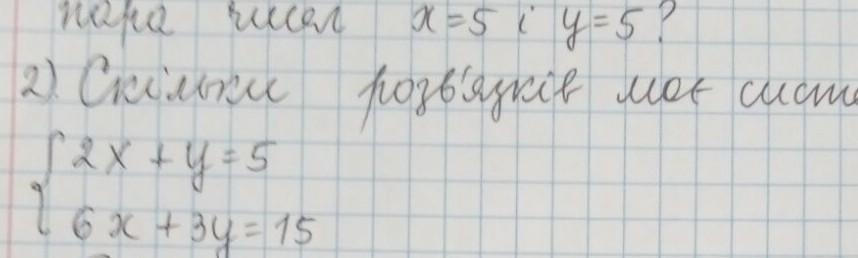 пара чисел x=5 і y=5?
2) Скільки розв'язків має
2x + y = 5
6x + 3y = 15